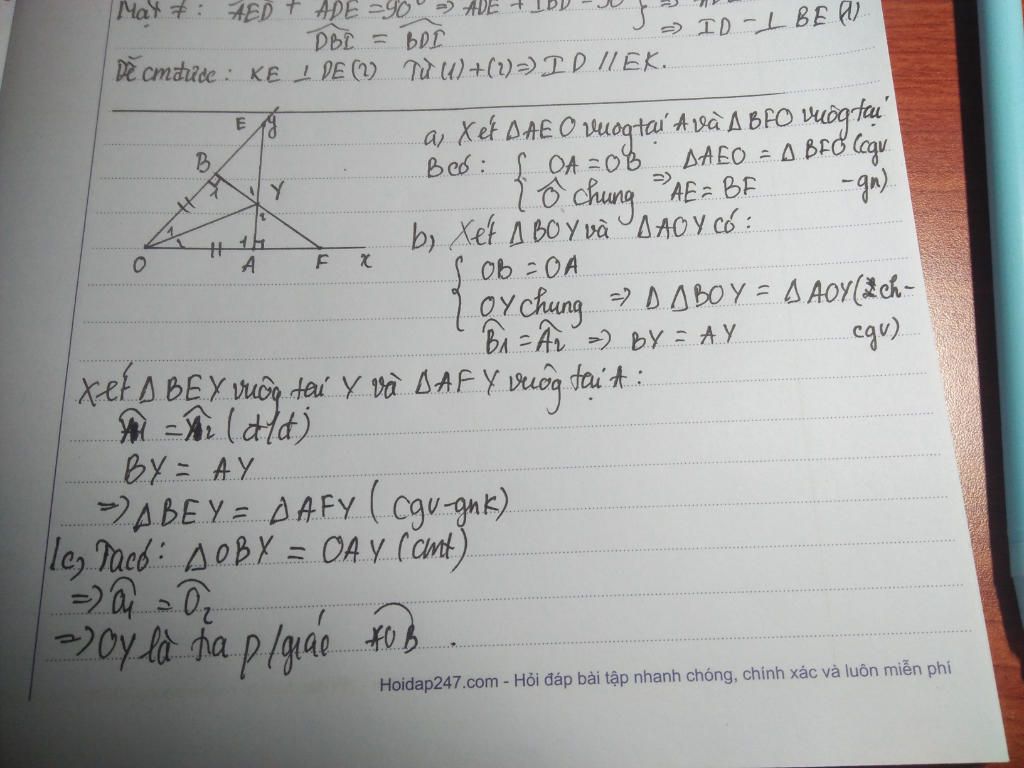 Mặt ≠ : AED + ADE = 90° => ADE + IBD = 90
DBI = BDI => ID ⊥ BE (1)
Dễ cm được : KE ⊥ DE (2) Từ (1) + (2) => ID // EK.
E y
B
Y
1
2
1
O A F x
a, Xét ΔAEO vuog tại A và ΔBFO vuog tại
B có : { OA = OB ΔAEO = ΔBFO (cgv
Ô chung => AE = BF -gn)
b, Xét ΔBOY và ΔAOY có :
OB = OA
OY chung => Δ ΔBOY = ΔAOY (ch-
B1 = A2 => BY = AY cgv)
Xét ΔBEY vuôg tại Y và ΔAFY vuôg tại A :
= (đ/đ)
BY = AY
=> ΔBEY = ΔAFY (cgv-gnk)
c, Ta có : ΔOBY = OAY (cmt)
=> O1 = O2
=> OY là tia p/giác xOB .
Hoidap247.com - Hỏi đáp bài tập nhanh chóng, chính xác và luôn miễn phí